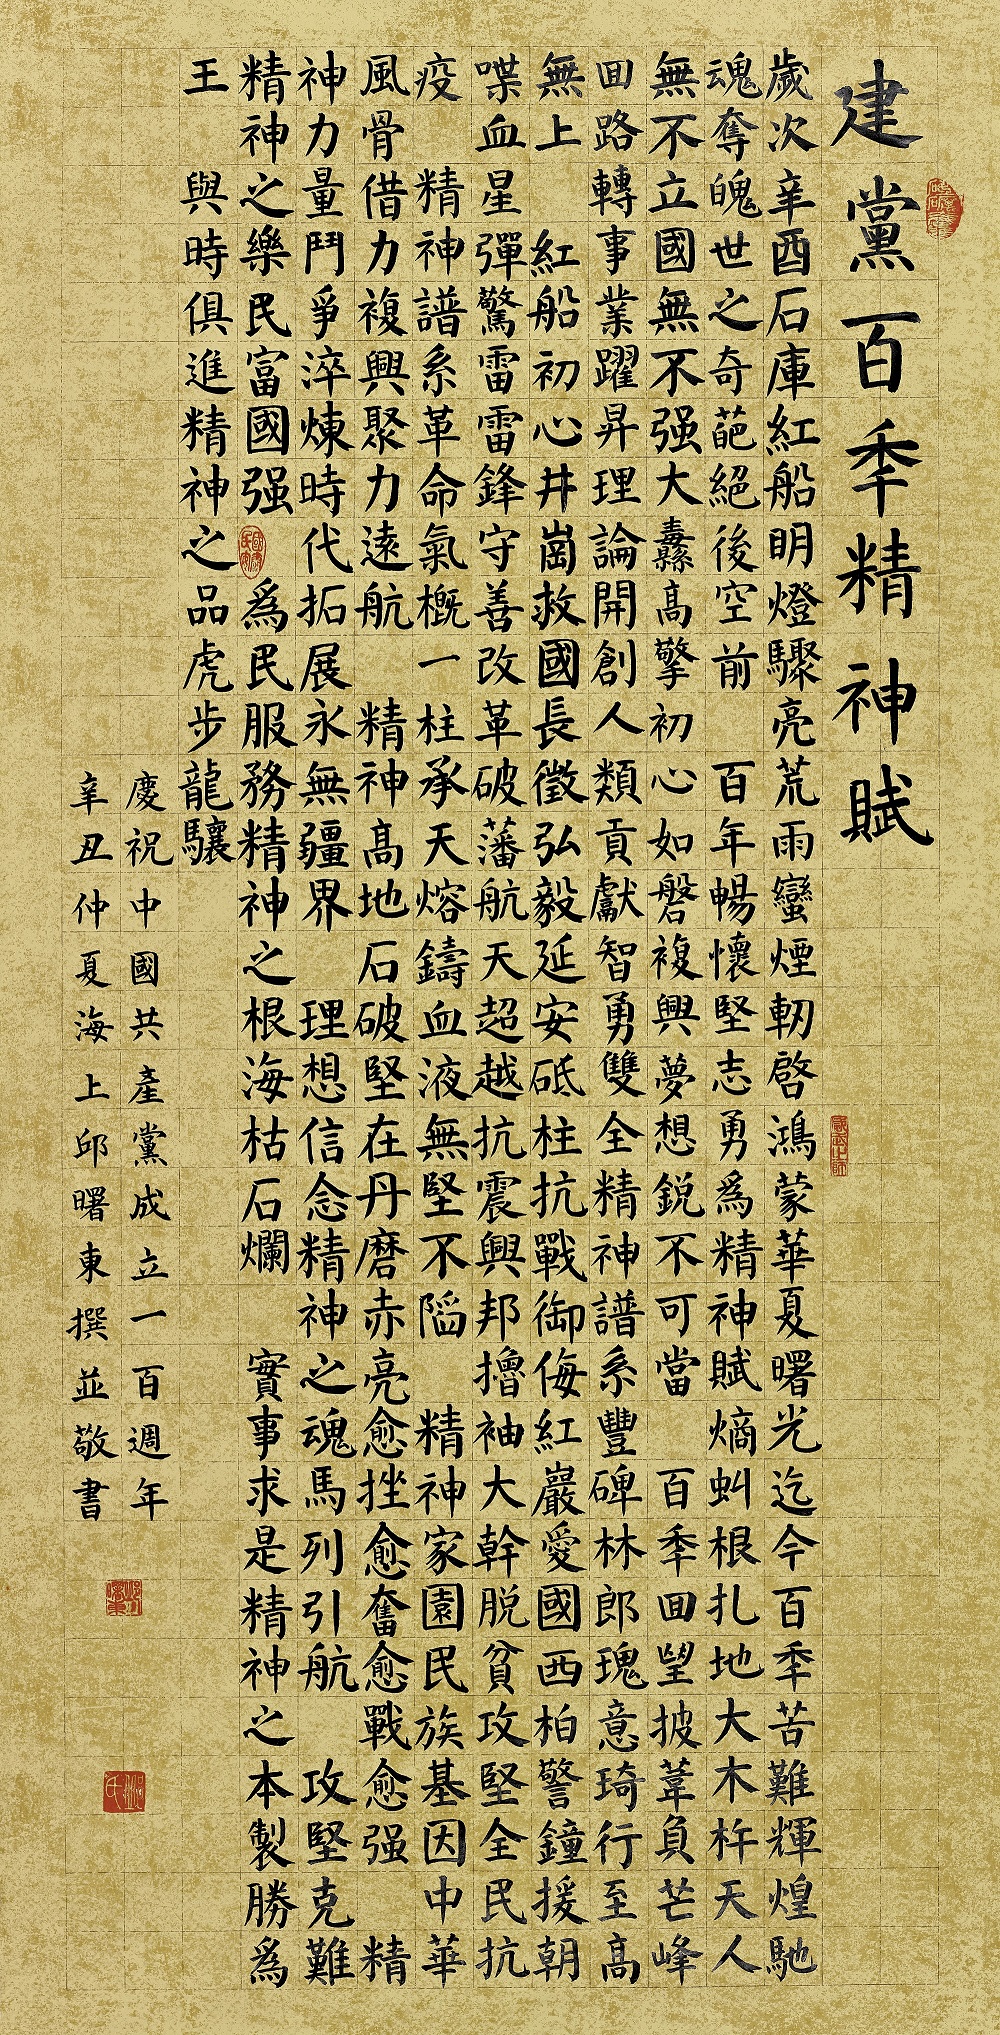 建黨百秊精神賦
歲次辛酉石庫紅船明燈驟亮荒雨蠻煙軔啓鴻蒙華夏曙光迄今百秊苦難輝煌馳
魂奪魄世之奇葩絕後空前 百年暢懷堅志勇爲精神賦熵虯根扎地大木杵天人
無不立國無不强大纛高擎初心如磐複興夢想銳不可當 百秊回望披葦負芒峰
回路轉事業躍昇理論開創人類貢獻智勇雙全精神譜系豐碑林郎瑰意琦行至高
無上 紅船初心井崗救國長徵弘毅延安砥柱抗戰御侮紅巖愛國西柏警鐘援朝
喋血星彈驚雷雷鋒守善改革破藩航天超越抗震興邦擼袖大幹脱貧攻堅全民抗
疫 精神譜系革命氣概一柱承天熔鑄血液無堅不陷 精神家園民族基因中華
風骨借力複興聚力遠航 精神高地石破堅在丹磨赤亮愈挫愈奮愈戰愈强 精
神力量鬥爭淬煉時代拓展永無疆界 理想信念精神之魂馬列引航 攻堅克難
精神之樂民富國强 爲民服務精神之根海枯石爛 實事求是精神之本製勝爲
王 與時俱進精神之品虎步龍驤
慶祝中國共產黨成立一百週年
辛丑仲夏海上邱曙東撰並敬書